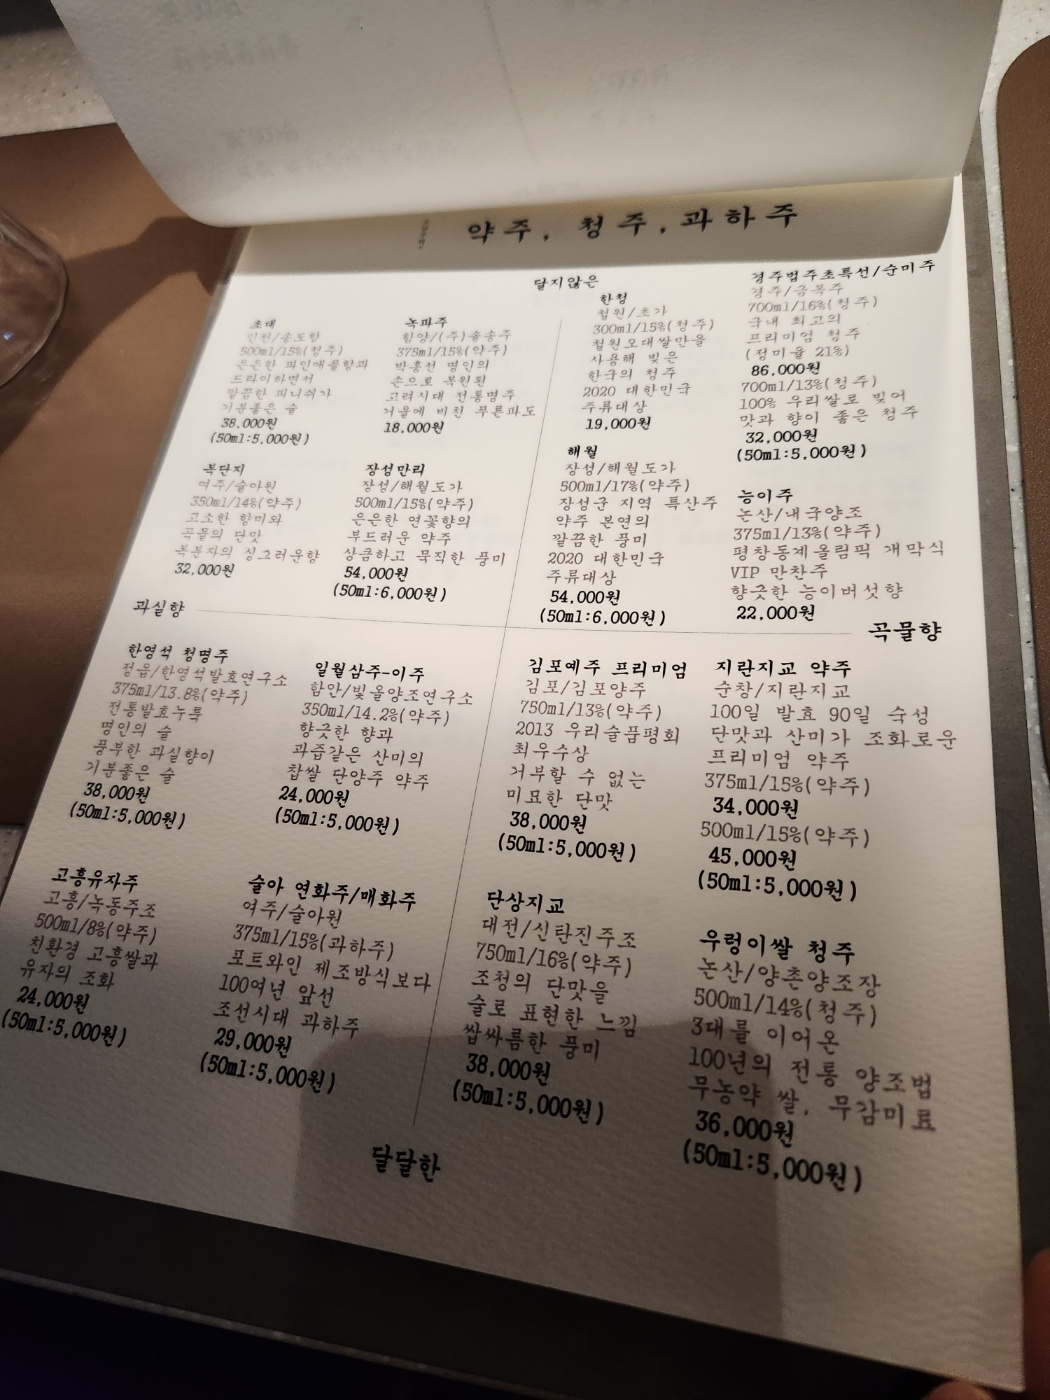 약주, 청주, 과하주
달지않은
초대
인천/송도향
500ml/15%(청주)
은은한 파인애플향과
드라이하면서
깔끔한 피니쉬가
기분좋은 술
38,000원
(50ml:5,000원)
녹파주
함양/(주)솔송주
375ml/15%(약주)
박흥선 명인의
손으로 복원된
고려시대 전통명주
거울에 비친 푸른파도
18,000원
한청
철원/초가
300ml/15%(청주)
철원오대쌀만을
사용해 빚은
한국의 청주
2020 대한민국
주류대상
19,000원
경주법주초특선/순미주
경주/금복주
700ml/16%(청주)
국내 최고의
프리미엄 청주
(정미율 21%)
86,000원
700ml/13%(청주)
100% 우리쌀로 빚어
맛과 향이 좋은 청주
32,000원
(50ml:5,000원)
복단지
여주/술아원
350ml/14%(약주)
고소한 향미와
곡물의 단맛
복분자의 싱그러운향
32,000원
장성만리
장성/해월도가
500ml/15%(약주)
은은한 연꽃향의
부드러운 약주
상큼하고 묵직한 풍미
54,000원
(50ml:6,000원)
해월
장성/해월도가
500ml/17%(약주)
장성군 지역 특산주
약주 본연의
깔끔한 풍미
2020 대한민국
주류대상
54,000원
(50ml:6,000원)
능이주
논산/내국양조
375ml/13%(약주)
평창동계올림픽 개막식
VIP 만찬주
향긋한 능이버섯향
22,000원
과실향
곡물향
한영석 청명주
정읍/한영석발효연구소
375ml/13.8%(약주)
전통발효누룩
명인의 술
풍부한 과실향이
기분좋은 술
38,000원
(50ml:5,000원)
일월삼주-이주
함안/빛올양조연구소
350ml/14.2%(약주)
향긋한 향과
과즙같은 산미의
찹쌀 단양주 약주
24,000원
(50ml:5,000원)
김포예주 프리미엄
김포/김포양주
750ml/13%(약주)
2013 우리술품평회
최우수상
거부할 수 없는
미묘한 단맛
38,000원
(50ml:5,000원)
지란지교 약주
순창/지란지교
100일 발효 90일 숙성
단맛과 산미가 조화로운
프리미엄 약주
375ml/15%(약주)
34,000원
500ml/15%(약주)
45,000원
(50ml:5,000원)
고흥유자주
고흥/녹동주조
500ml/8%(약주)
친환경 고흥쌀과
유자의 조화
24,000원
(50ml:5,000원)
술아 연화주/매화주
여주/술아원
375ml/15%(과하주)
포트와인 제조방식보다
100여년 앞선
조선시대 과하주
29,000원
(50ml:5,000원)
단상지교
대전/신탄진주조
750ml/16%(약주)
조청의 단맛을
술로 표현한 느낌
쌉싸름한 풍미
38,000원
(50ml:5,000원)
우렁이쌀 청주
논산/양촌양조장
500ml/14%(청주)
3대를 이어온
100년의 전통 양조법
무농약 쌀, 무감미료
36,000원
(50ml:5,000원)
달달한